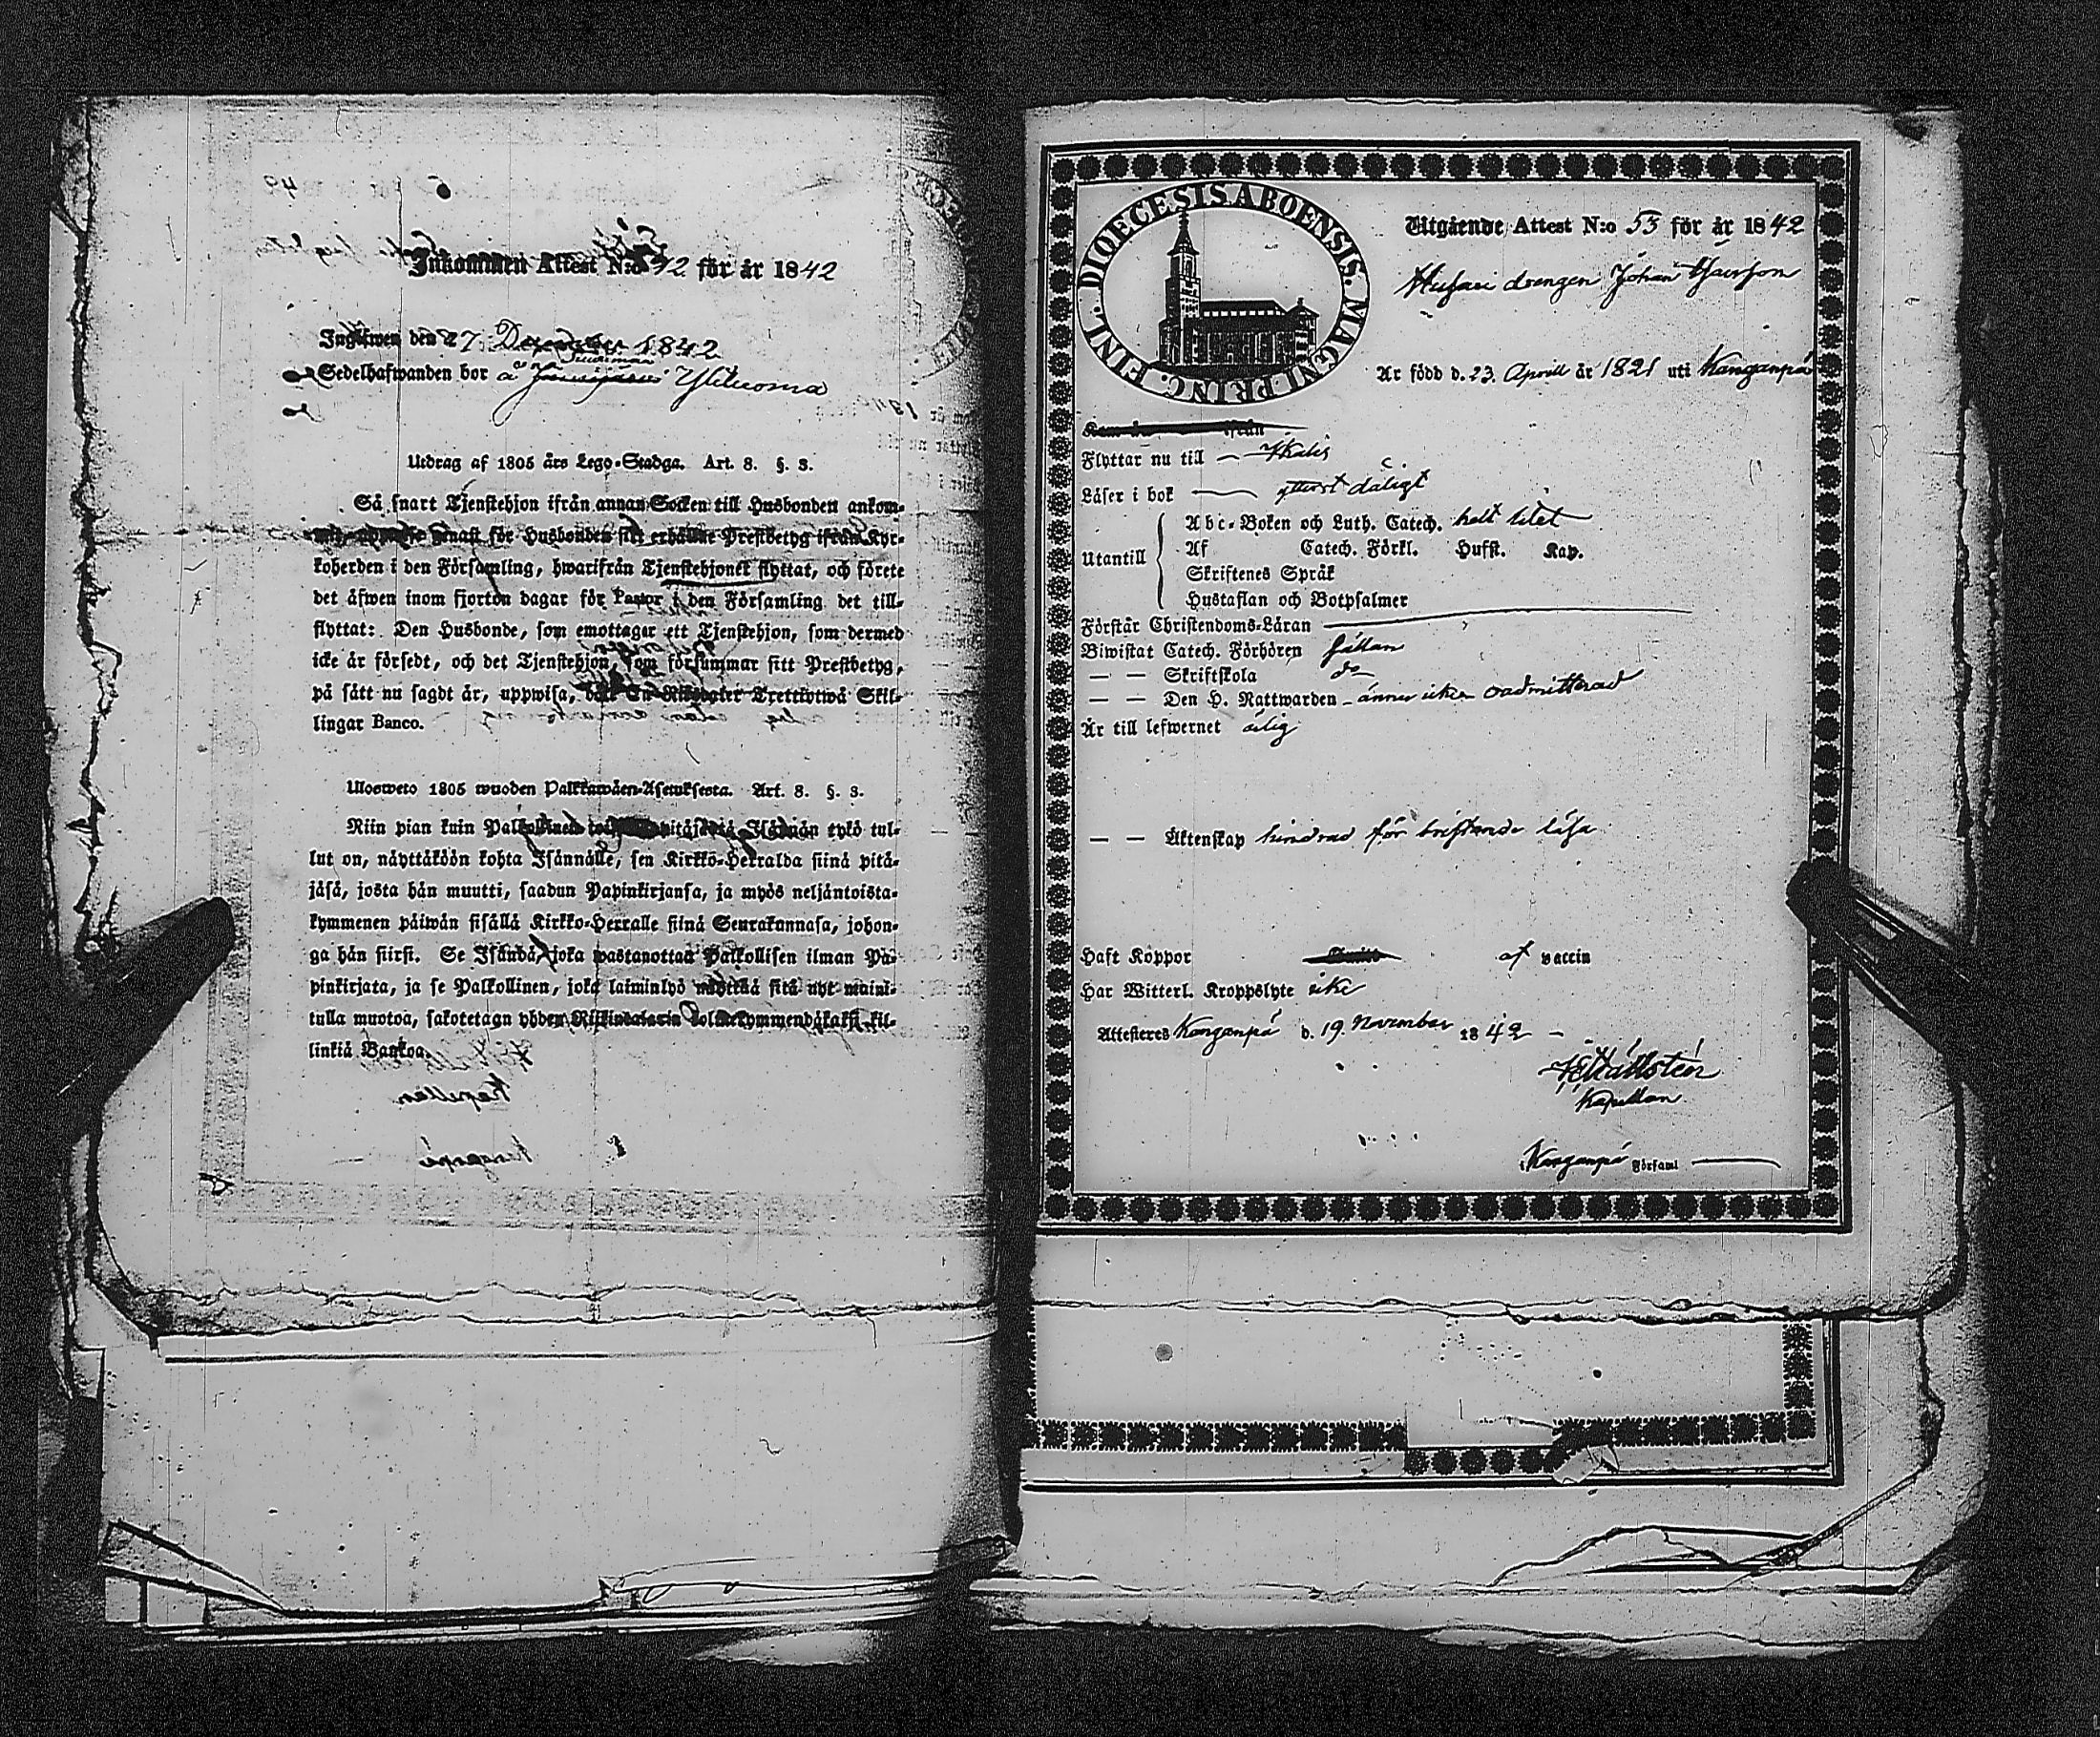 Inkommen Attest N:o 92 för år 1842
Ingifwen den 27 December 1842
Sedelhafwanden bor å Ylikuoma
Utdrag af 1805 års Lego-Stadga. Art. 8. §. 3.
Så snart Tjenstehjon ifrån annan Socken till Husbonden ankom-
genast för Husbonden sitt erhållne Prestbetyg ifrån Kyr-
koherden i den Församling, hwarifrån Tjenstehjonet flyttat, och förete
det äfwen inom fjorton dagar för Pastor i den Församling det till-
flyttat: Den Husbonde, som emottager ett Tjenstehjon, som dermed
icke är försedt, och det Tjenstehjon, som försummar sitt Prestbetyg,
på sätt nu sagdt är, uppwisa, böte En Riksdaler Trettiotwå Skil-
lingar Banco.
Ulosweto 1805 wuoden Palkkawäen-Asetuksesta. Art. 8. §. 3.
Niin pian kuin Palkollinen pitäjästä Isännän tykö tul-
lut on, näyttäköön kohta Isännälle, sen Kirkko-Herralda siinä pitä-
jäsä, josta hän muutti, saadun Papinkirjansa, ja myös neljäntoista-
kymmenen päiwän sisällä Kirkko-Herralle siinä Seurakunnasa, johon-
ga hän siirsi. Se Isändä, joka wastanottaa Palkollisen ilman Pa-
pinkirjata, ja se Palkollinen, joka laiminlyö näyttää sitä nyt maini-
tulla muotoa, sakotetaan yhden Riikindalarin kolmekymmendäkaksi kil-
lingiä Bankoa.
DIOECESIS ABOENSIS. MAGNI PRINC. FINL.
Utgående Attest N:o 53 för år 1842
drengen Johan
Är född d. 23. Aprill år 1821 uti Kanganpä
Flyttar nu till Ikalis
Läser i bok ytterst dåligt
Utantill
Abc-Boken och Luth. Catech. helt litet
Af Catech. Förkl. Hufst. Kap.
Skriftenes Språk
Hustaflan och Botpsalmer
Förstår Christendoms-Läran
Biwistat Catech. Förhören sällan
— — Skriftskola do
— — Den H. Nattwarden ännu icke oadmitterad
Är till lefwernet ärlig
— — Äktenskap hindrad för bristande läsa
Haft Koppor af vaccin
Har Witterl. Kroppslyte icke
Attesteres Kanganpä d. 19. November 1842
Kapellan
i Kanganpä Församl